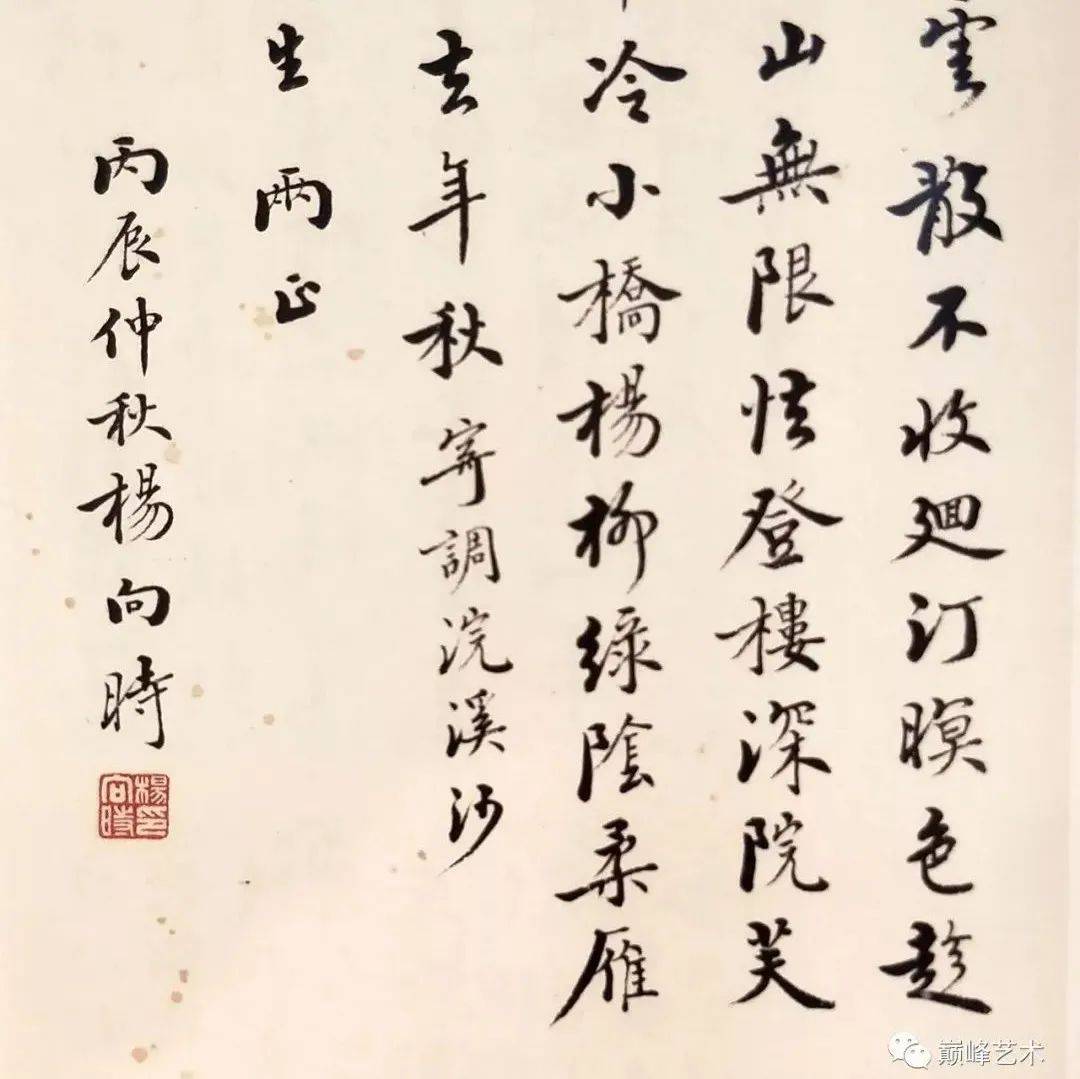 雲散不收迴汀暝色趁
山無限恠登樓深院芙
冷小橋楊柳綠陰柔雁
去年秋寄調浣溪沙
生兩正
丙辰仲秋楊向時
楊向時印
巅峰艺术